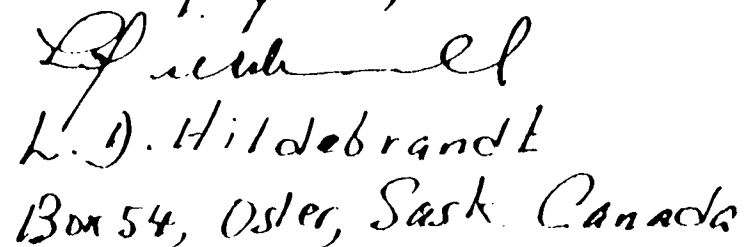 L. D. Hildebrandt
Box 54, Osler, Sask. Canada